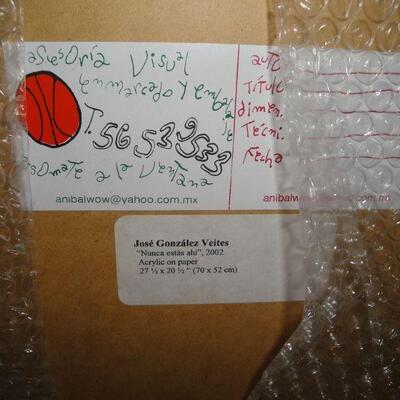 asesoría Visual
enmarcado y embalaje
T. 56 53 9533
asomate a la ventana
anibalwow@yahoo.com.mx
auto
título
dimen.
técni.
fecha
anibalwow@yahoo.com.mx
José González Veites
"Nunca estás ahí", 2002
Acrylic on paper
27 ½ x 20 ½ " (70 x 52 cm)